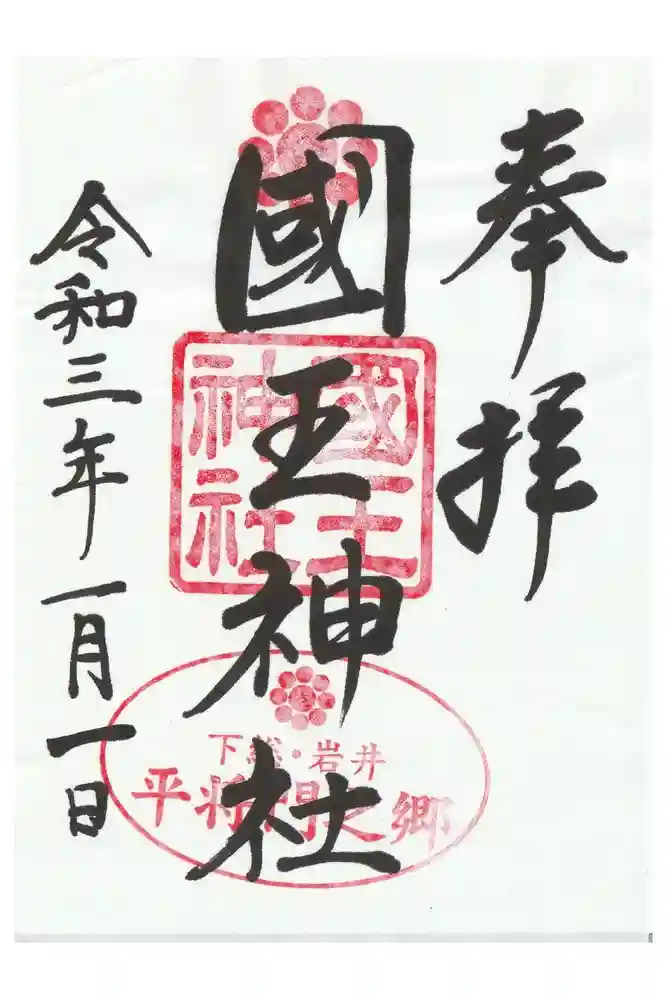 奉拝
國王神社
國王神社
下総・岩井
平将門之郷
令和三年一月一日